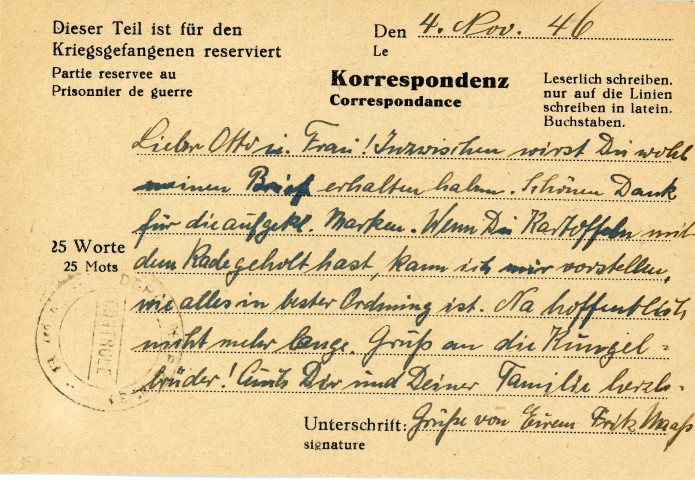 Dieser Teil ist für den
Kriegsgefangenen reserviert
Partie reservee au
Prisonnier de guerre
Den 4. Nov. 46
Le
Korrespondenz
Correspondance
Leserlich schreiben.
nur auf die Linien
schreiben in latein.
Buchstaben.
Lieber Otto u. Frau! Inzwischen wirst Du wohl
meinen Brief erhalten haben. Schönen Dank
für die aufgekl. Marken. Wenn Du Kartoffeln mit
dem Rade geholt hast, kann ich mir vorstellen,
wie alles in bester Ordnung ist. Na hoffentlich
nicht mehr lange. Gruß an die Kungel-
brüder! Dir und Deiner Familie herzl.
25 Worte
25 Mots
CONTROLE
Unterschrift: Grüße von Eurem Fritz Maaß
signature